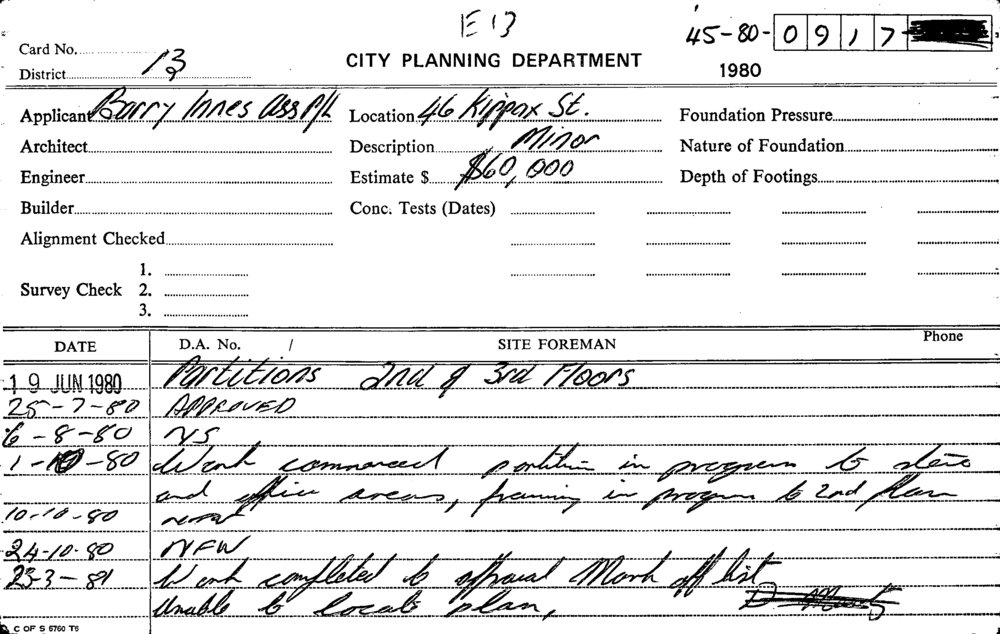 E 13
45-80- 0 9 1 7
Card No.
District 13
CITY PLANNING DEPARTMENT
1980
Applicant Barry Innes Ass P/L
Location 46 Kippax St.
Foundation Pressure
Architect
Description Minor
Nature of Foundation
Engineer
Estimate $ $60,000
Depth of Footings
Builder
Conc. Tests (Dates)
Alignment Checked
Survey Check 1.
2.
3.
DATE D.A. No. / SITE FOREMAN Phone
19 JUN 1980 Partitions 2nd & 3rd Floors
25-7-80 APPROVED
6-8-80 NS
1-10-80 Work commenced partition in progress to store
and office areas, framing in progress to 2nd floor
10-10-80
24-10-80 NFW
23-3-81 Work completed to approval Mark off list
Unable to locate plan,
C OF S 5760 T6